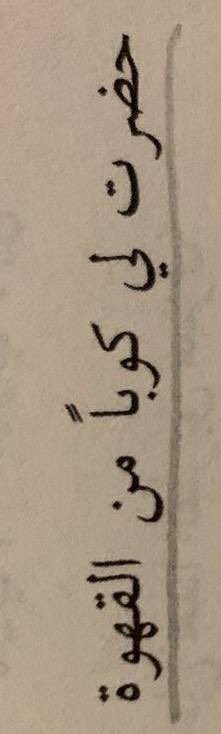 حضرت لي كوباً من القهوة